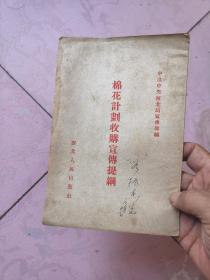 中共中央西北局宣傳部編
棉花計劃收購宣傳提綱
西北人民出版社